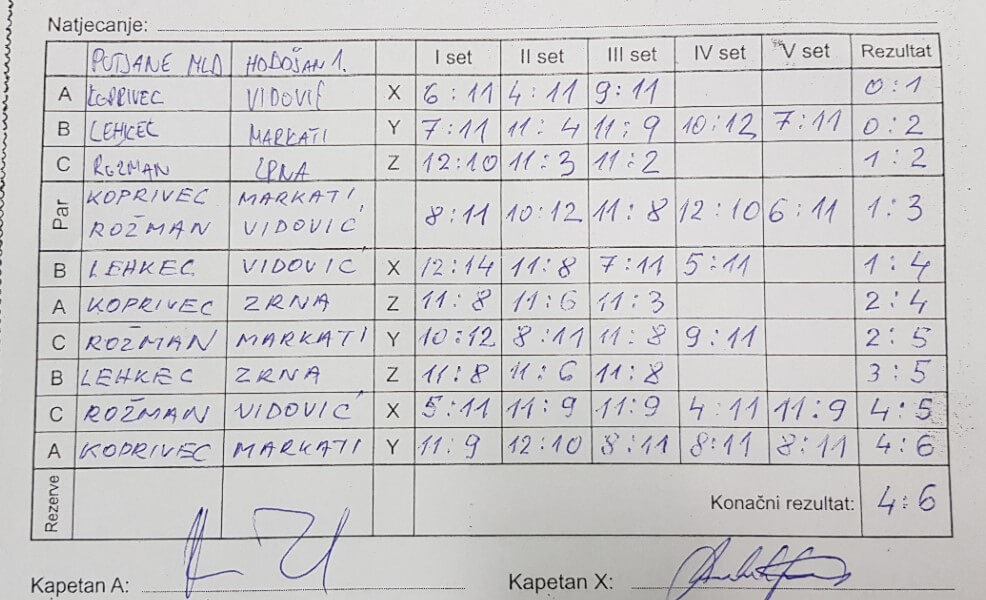 Natjecanje:
PUTJANE MLD HODOŠAN 1. I set II set III set IV set V set Rezultat
A KOPRIVEC VIDOVIĆ X 6:11 4:11 9:11 0:1
B LEHKEC MARKATI Y 7:11 11:4 11:9 10:12 7:11 0:2
C ROZMAN ZRNA Z 12:10 11:3 11:2 1:2
Par KOPRIVEC MARKATI 8:11 10:12 11:8 12:10 6:11 1:3
ROŽMAN VIDOVIĆ
B LEHKEC VIDOVIĆ X 12:14 11:8 7:11 5:11 1:4
A KOPRIVEC ZRNA Z 11:8 11:6 11:3 2:4
C ROŽMAN MARKATI Y 10:12 8:11 11:8 9:11 2:5
B LEHKEC ZRNA Z 11:8 11:6 11:8 3:5
C ROŽMAN VIDOVIĆ X 5:11 11:9 11:9 4:11 11:9 4:5
A KOPRIVEC MARKATI Y 11:9 12:10 8:11 8:11 8:11 4:6
Rezerve Konačni rezultat: 4:6
Kapetan A: Kapetan X: